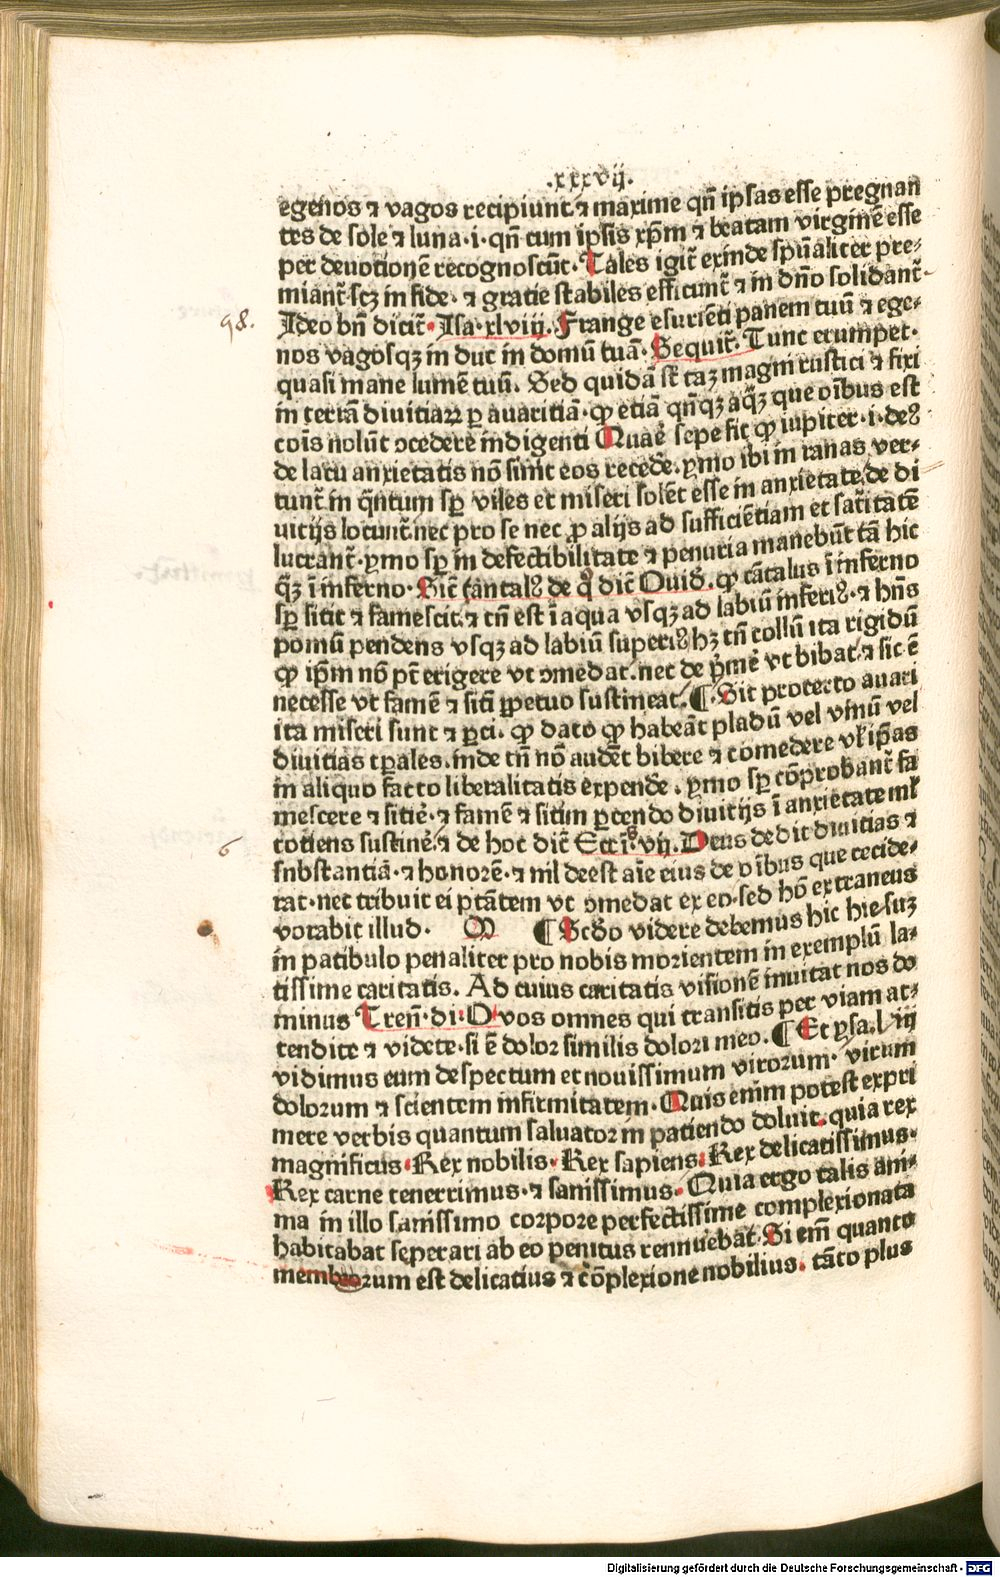 .xxxvij.
egenos ⁊ vagos recipiunt ⁊ maxime qn̄ ipsas esse pregnan
tes de sole ⁊ luna·i·qn̄ cum ipsis xp̄m ⁊ beatam virginē esse
per deuotionē recognoscūt. Tales igit̄ exinde spūaliter pre⸗
miant̄ scꝫ in fide· ⁊ gratie stabiles efficiunt̄ ⁊ in dn̄o solidant̄
98.
Ideo bn̄ dicit̄· Isa·xlviij. Frange esuriēti panem tuū ⁊ ege⸗
nos vagosqꝫ in duc in domū tuā· Sequit̄. Tunc erumpet·
quasi mane lumē tuū. Sed quidā sūt taꝫ magni rustici ⁊ fixi
in terrā diuitiaꝝ ꝑ auaritiā· ꝙ etiā qn̄qꝫ aq̄ꝫ que oībus est
coīs nolūt ꝯcedere indigenti Quaꝓ sepe fit ꝙ iupiter·i·deꝰ
de lacu anxietatis nō sinit eos recedē. ymo ibi in ranas ver⸗
tunt̄ in q̄ntum sꝑ viles et miseri solēt esse in anxietate de di
uitijs locunt̄ nec pro se nec ꝓ alijs ad sufficiētiam et satītatē
lucrant̄·ymo sꝑ in defectibilitate ⁊ penuria manebūt tā hic
q̄ꝫ ī inferno· Sic̄ tantalꝰ de q̊ dic̄ Ouid̄. ꝙ tātalus ī inferno
sꝑ sitit ⁊ famescit·⁊ tn̄ est ī aqua vsqꝫ ad labiū inferiꝰ·⁊ hn̄s
pomū pendens vsqꝫ ad labiū superiꝰ hꝫ tn̄ collū ita rigidū
ꝙ ip̄m nō pt̄ erigere vt ꝯmedat. nec de p̄mē vt bibat·⁊ sic ē
necesse vt famē ⁊ sitī ꝑpetuo sustineat. ¶ Sic proterto auari
ita miseri sunt ⁊ ꝑci. ꝙ dato ꝙ habeāt pladū vel vinū vel
diuitias tꝑales. inde tn̄ nō audēt bibere ⁊ comedere vl̄ ip̄as
in aliquo facto liberalitatis expende. ymo sꝑ cōprobant̄ fa
mescere ⁊ sitiē. ⁊ famē ⁊ sitim ꝑtendo diuitijs ī anxietate ml̄
totiens sustinē. ⁊ de hoc dic̄ Eccīs. vij. Deus dedit diuitias ⁊
6
substantiā·⁊ honorē·⁊ nil deest aīe eius de oībus que decide⸗
rat·nec tribuit ei ptātem vt ꝯmedat ex eo·sed hō extraneus
vorabit illud. M ¶ Scd̄o videre debemus hic hiesuꝫ
in patibulo penaliter pro nobis morientem in exemplū la⸗
tissime caritatis. Ad cuius caritatis visionē inuitat nos do
minus Tren̄·di: O vos omnes qui transitis per viam at⸗
tendite ⁊ videte·si ē dolor similis dolori meo. ¶ Et ysa.liij
vidimus eum despectum et nouissimum virorum· virum
dolorum ⁊ scientem infirmitatem. Quis enim potest expri
mere verbis quantum saluator in patiendo doluit. quia rex
magnificus· Rex nobilis· Rex sapiens· Rex delicatissimus·
Rex carne tenerrimus·⁊ sanissimus. Quia ergo talis ani⸗
ma in illo sanissimo corpore perfectissime complexionata
habitabat seperari ab eo penitus rennuebat. Si em̄ quanto
membrorum est delicatius ⁊ cōplexione nobilius. tāto plus
Digitalisierung gefördert durch die Deutsche Forschungsgemeinschaft - DFG